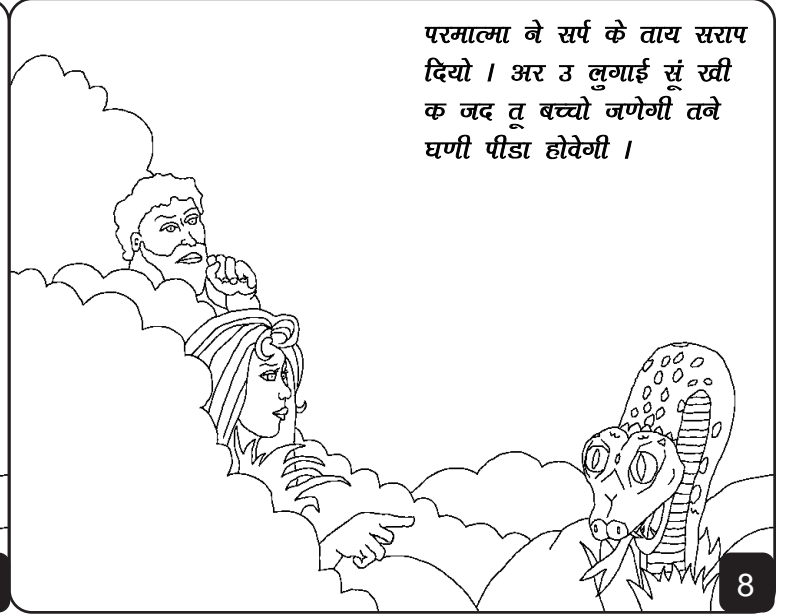 परमात्मा ने सर्प के ताय सराप
दियो । अर उ लुगाई सूं खी
क जद तू बच्चो जणेगी तने
घणी पीडा होवेगी ।
8